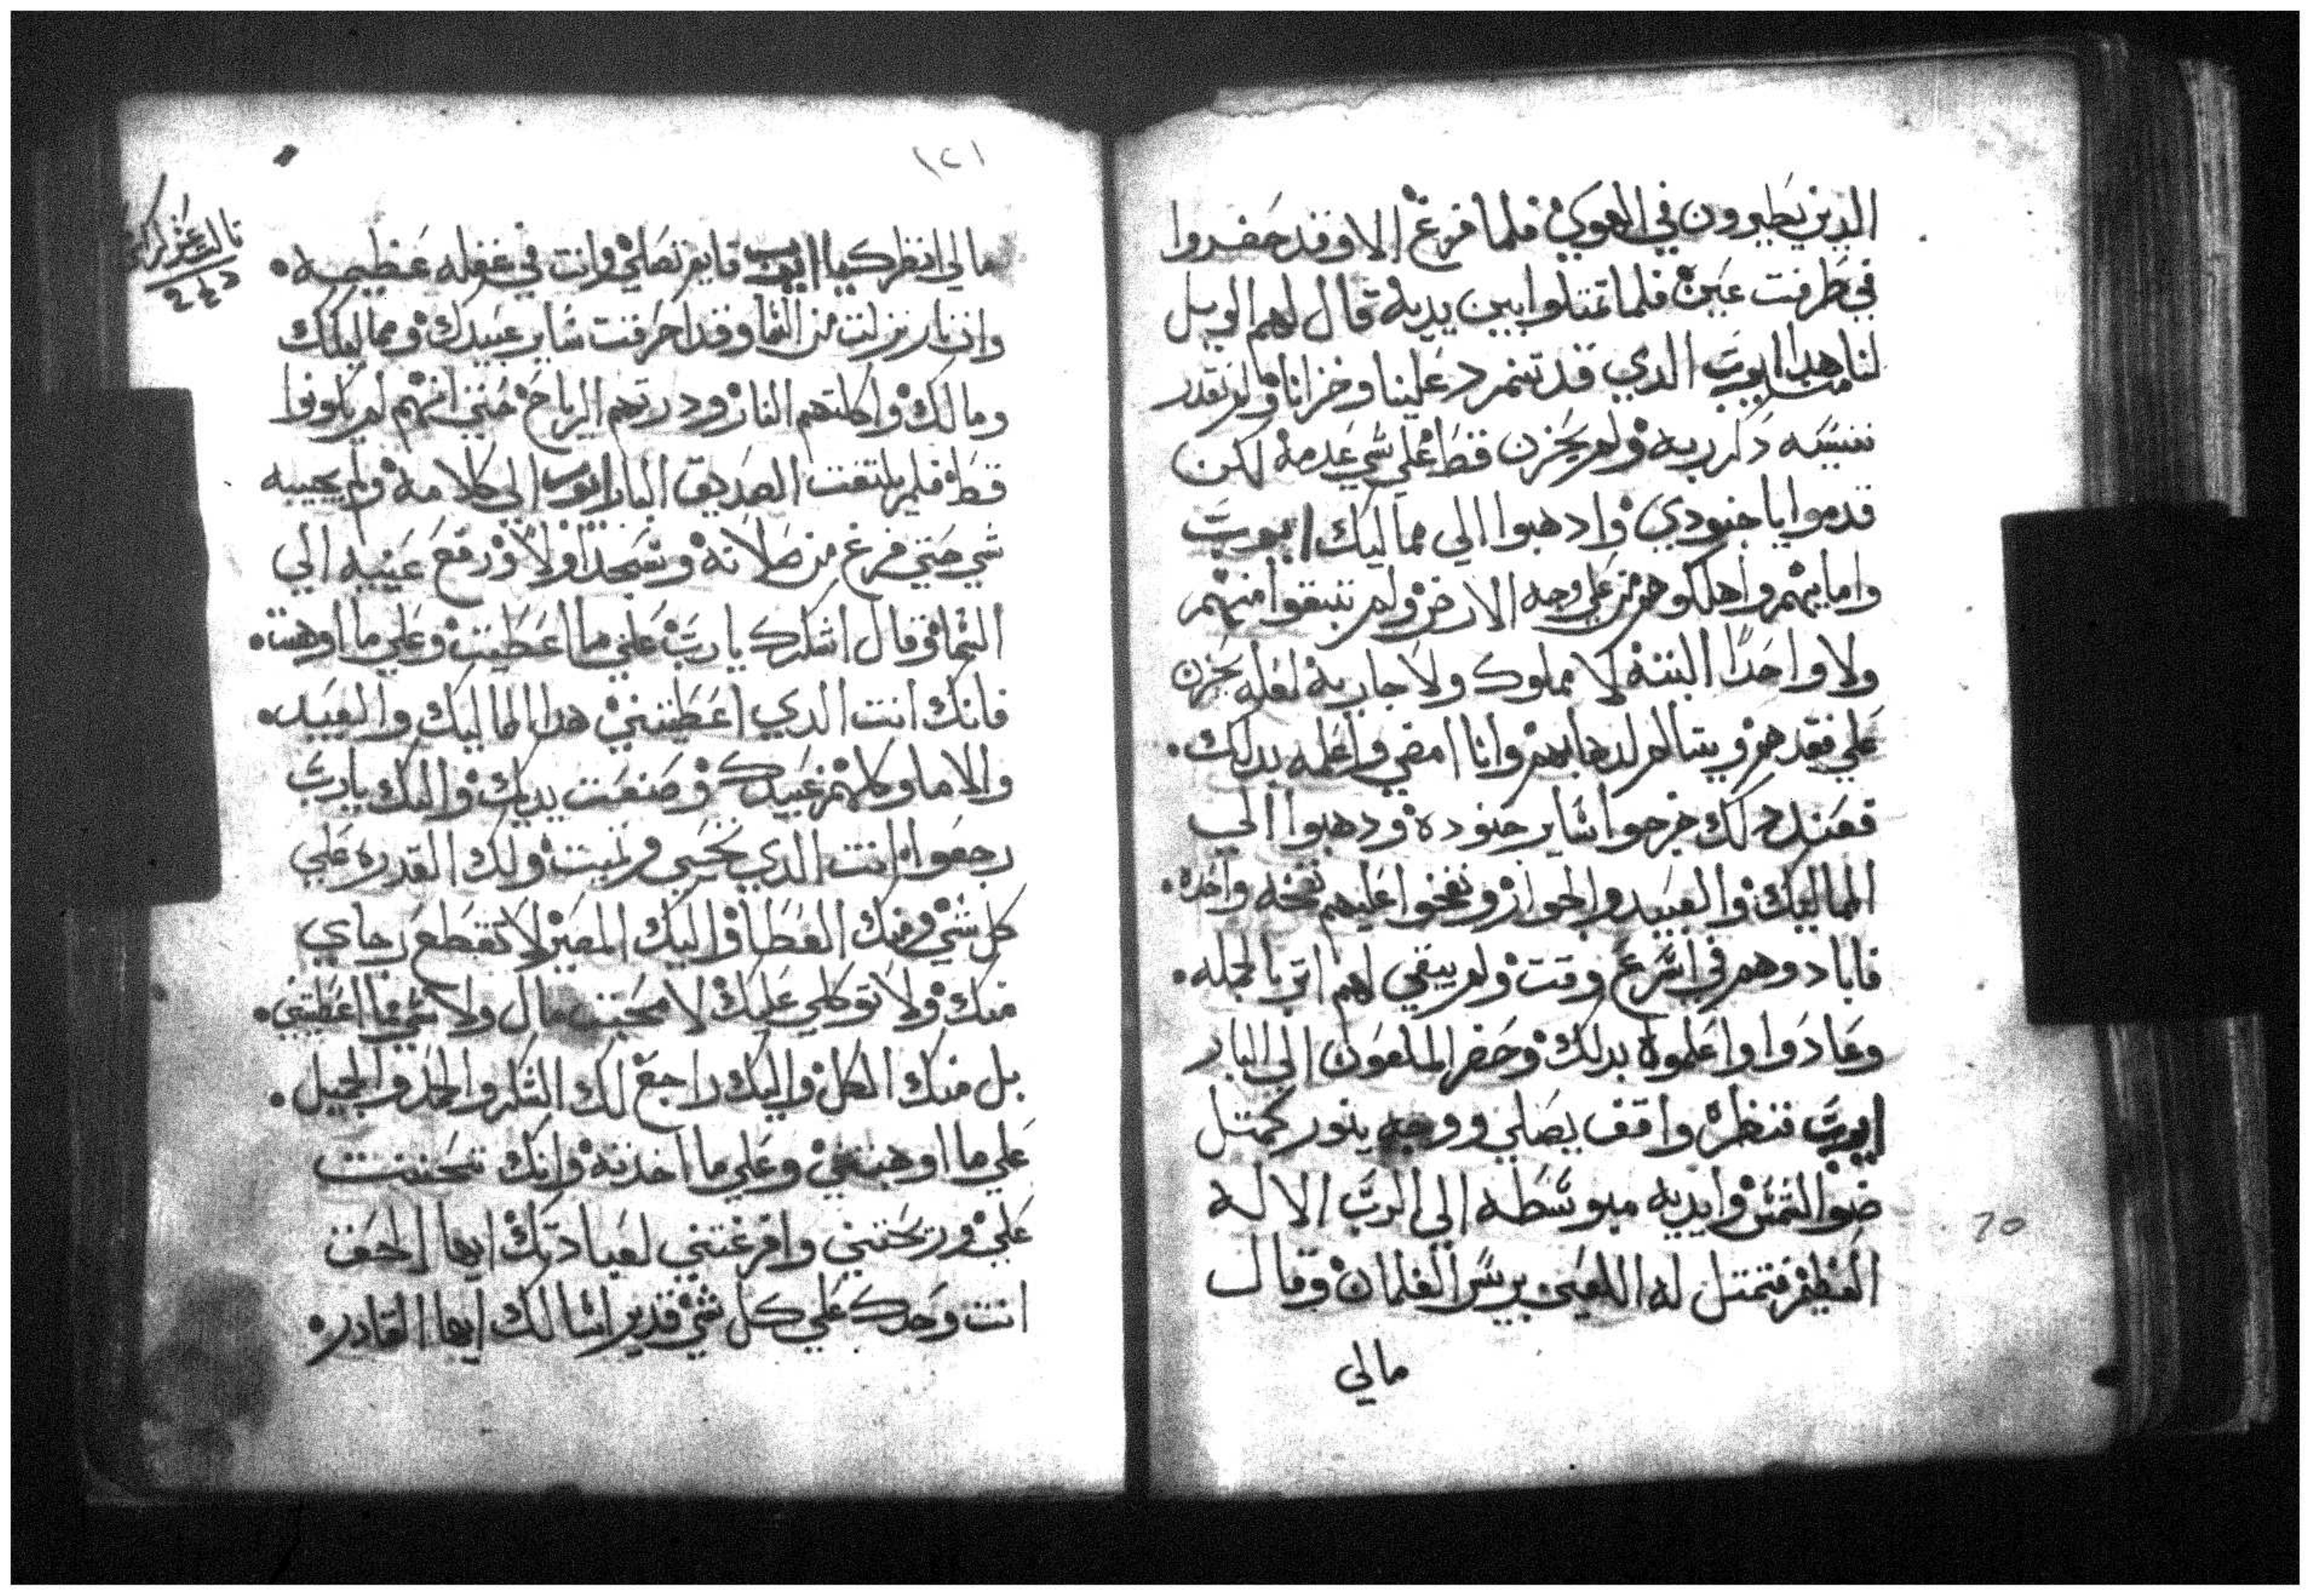 الدين يطيرون في الهوي فلما فرغ الا وقد حضروا
في طرفت عين فلما تمتلوا بين يديه قال لهم الويل
لنا من هدا ايوب الدي قد تنمرد علينا وخزانا ولم نقدر
ننسيه دكر ربه ولم يحزن قط علي شي عدمه لكن
قدموا يا جنودي وادهبوا الي مماليك ايوب
واماييهم واهلكوهم من علي وجه الارض ولم تبقوا منهم
ولا واحدا البته لا مملوك ولا جاريه لعله يحزن
علي فقدهم ويتالم لدهابهم وانا امضي واعلمه بدلك
فعند دلك خرجوا ساير جنوده ودهبوا الي
المماليك والعبيد والجوار ونفخوا عليهم نفخه واحده
فابادوهم في اسرع وقت ولم يبقي لهم اتر بالجمله
وعادوا واعلموه بدلك وحضر الملعون الي البار
ايوب فنظره واقف يصلي ووجهه ينور كمتل
ضو الشمس وايديه مبوسطه الي الرب الاله
العظيم فتمتل له اللعين بريس الغلمان وقال
مالي
١٢١
مالي انظرك يا ايوب قايم تصلي وانت في غفله عظيمه
وان نار نزلت من السما وقد احرقت ساير عبيدك ومماليكك
ومالك واكلتهم النار ودرتهم الرياح حتي انهم لم يكونوا
قط فلم يلتفت الصديق البار ايوب الي كلامه ولم يجيبه
شي حتي فرغ من صلاته وسجد اولا ورفع عينيه الي
السما وقال اشكرك يا رب علي ما اعطيت وعلي ما اوهبت
فانك انت الدي اعطيتني هدا المماليك والعبيد
والاما وكلهم عبيدك وصنعت يديك واليك يا رب
رجعوا انت الدي تحيي وتميت ولك القدره علي
كل شي ومنك العطا واليك المصير لا تقطع رجاي
منك ولا توكلي عليك لا محبت مال ولا شي مما اعطيتني
بل منك الكل واليك راجع لك الشكر والحمد والجميل
علي ما اوهبتني وعلي ما اخدته وانك تحننت
علي وريحتني وافرغتني لعبادتك ايها الحق
انت وحدك علي كل شي قدير اسالك ايها القادر
70